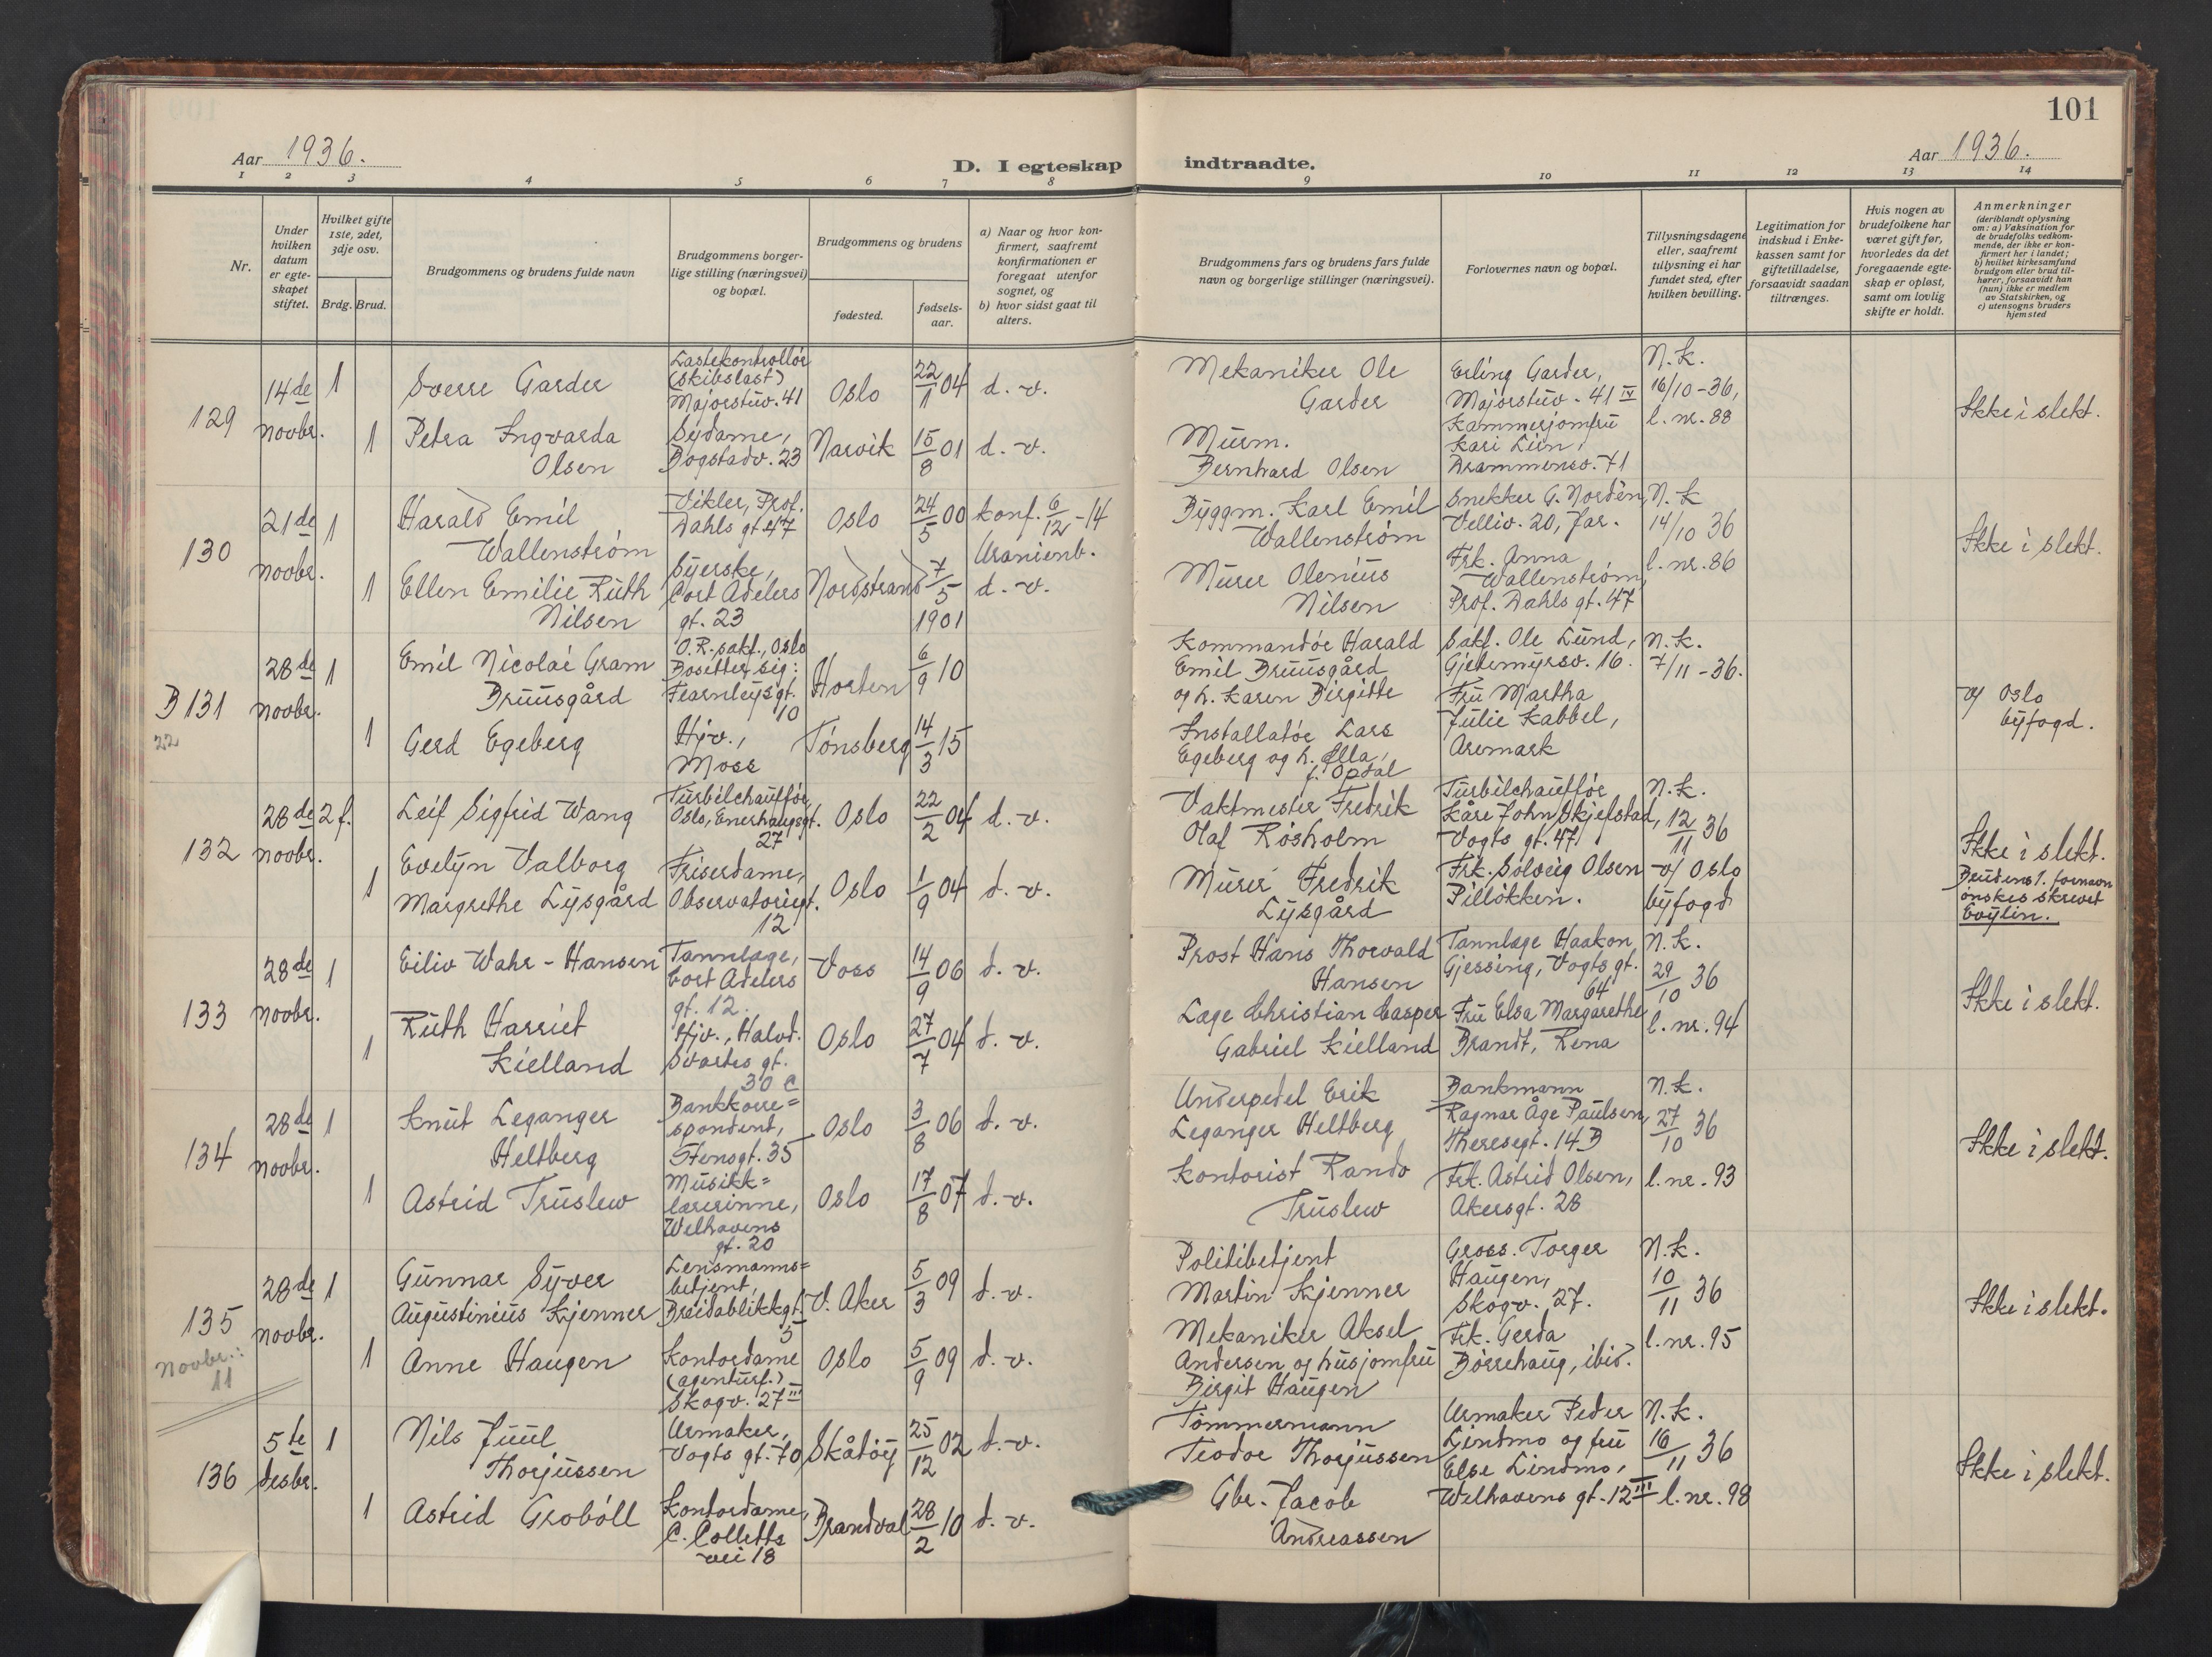 101
Aar 1936.
D. I egteskap indtraadte.
Aar 1936.
1 2 3 4 5 6 7 8 9 10 11 12 13 14
Nr.
Under
hvilken
datum
er egte-
skapet
stiftet.
Hvilket gifte
1ste, 2det,
3dje osv.
Brdg. Brud.
Brudgommens og brudens fulde navn
Brudgommens borger-
lige stilling (næringsvei)
og bopæl.
Brudgommens og brudens
fødested.
fødsels-
aar.
a) Naar og hvor kon-
firmert, saafremt
konfirmationen er
foregaat utenfor
sognet, og
b) hvor sidst gaat til
alters.
Brudgommens fars og brudens fars fulde
navn og borgerlige stillinger (næringsvei).
Forlovernes navn og bopæl.
Tillysningsdagene
eller, saafremt
tillysning ei har
fundet sted, efter
hvilken bevilling.
Legitimation for
indskud i Enke-
kassen samt for
giftetilladelse,
forsaavidt saadan
tiltrænges.
Hvis nogen av
brudefolkene har
været gift før,
hvorledes da det
foregaaende egte-
skap er opløst,
samt om lovlig
skifte er holdt.
Anmerkninger
(deriblandt oplysning
om: a) Vaksination for
de brudefolks vedkom-
mende, der ikke er kon-
firmert her i landet;
b) hvilket kirkesamfund
brudgom eller brud til-
hører, forsaavidt han
(hun) ikke er medlem
av Statskirken, og
c) utensogns bruders
hjemsted
129
14de
novbr.
1
Sverre Garder
Lastekontrollør
(skibslast)
Majorstuv. 41
Oslo
22/1 04
d. v.
Mekaniker Ole
Garder
Erling Garder,
Majorstuv. 41 IV
N.K.
16/10-36,
l. nr. 88
Ikke i slekt.
1
Petra Ingvarda
Olsen
Sydame,
Bogstadv. 23
Narvik
15/8 01
d. v.
Murm.
Bernhard Olsen
Kammerjomfru
Kari Lien,
Drammensv. 71
130
21de
novbr.
1
Harald Emil
Wallenstrøm
Vikler, Prof.
Dahls gt. 47
Oslo
24/5 00
konf. 6/12-14
Uranienb.
Byggm. Karl Emil
Wallenstrøm
Snekker G. Nordèn,
Velliv. 20, Jar.
N.K
14/10 36
l. nr. 86
Ikke i slekt.
1
Ellen Emilie Ruth
Nilsen
Syerske,
Cort Adelers
gt. 23
Nordstrand
7/5
1901
d. v.
Murer Olenius
Nilsen
Frk. Anna
Wallenstrøm,
Prof. Dahls gt. 47
B 131
22
28de
novbr.
1
Emil Nicolai Gram
Bruusgård
O.R. sakf., Oslo
Bosetter sig:
Fearnleysgt.
10
Horten
6/9 10
Kommandør Harald
Emil Bruusgård
og h. Karen Birgitte
Sakf. Ole Lund,
Gjetemyrsv. 16.
N.K.
7/11-36.
v/ Oslo
byfogd.
1
Gerd Egeberg
Hjv.,
Moss
Tønsberg
14/3 15
Installatør Lars
Egeberg og h. Ella,
f. Opdal
Fru Martha
Julie Kabbel,
Aremark
132
28de
novbr.
2 f.
Leif Sigfrid Wang
Turbilchauffør,
Oslo, Enerhaugsgt.
27
Oslo
22/2 04
d. v.
Vaktmester Fredrik
Olaf Rosholm
Turbilchauffør
Kåre John Skjefstad,
Vogts gt. 47
N.K.
12/11 36
v/ Oslo
byfogd
Ikke i slekt.
Brudens 1. fornavn
ønskes skrevet
Evylin.
1
Evelyn Valborg
Margrethe Lysgård
Friserdame,
Observatoriegt.
12
Oslo
1/9 04
d. v.
Murer Fredrik
Lysgård
Frk. Solveig Olsen
Pilløkken.
133
28de
novbr.
1
Eiliv Wahr-Hansen
Tannlæge,
Cort Adelers
gt. 12.
Voss
14/9 06
d. v.
Prost Hans Thorvald
Hansen
Tannlæge Haakon
Gjessing, Vogts gt.
64
N.K.
29/10 36
l. nr. 94
Ikke i slekt.
1
Ruth Harriet
Kielland
Hjv., Halvd.
Svartes gt.
30 C
Oslo
27/7 04
d. v.
Læge Christian Casper
Gabriel Kielland
Fru Elsa Margarethe
Brandt, Rena
134
28de
novbr.
1
Knut Leganger
Heltberg
Bankkorre=
spondent,
Stensgt. 35
Oslo
3/8 06
d. v.
Underpedel Erik
Leganger Heltberg
Bankmann
Ragnar Åge Paulsen,
Theresegt. 14 B
N.K.
27/10 36
l. nr. 93
Ikke i slekt.
1
Astrid Truslew
Musikk=
lærerinne,
Welhavens
gt. 20
Oslo
17/8 07
d. v.
Kontorist Rando
Truslew
Frk. Astrid Olsen,
Akersgt. 28
135
Novbr.:
11
28de
novbr.
1
Gunnar Syver
Augustinius Kjenner
Lensmanns=
betjent,
Breidablikkgt.
5
V. Aker
5/3 09
d. v.
Politibetjent
Martin Kjenner
Gross. Torger
Haugen,
Skogv. 27.
N.K.
10/11 36
l. nr. 95
Ikke i slekt.
1
Anne Haugen
Kontordame
(agenturf.)
Skogv. 27 III
Oslo
5/9 09
d. v.
Mekaniker Aksel
Andersen og husjomfru
Birgit Haugen
Frk. Gerda
Børrehaug, ibid.
136
5te
desbr.
1
Nils Juul
Thorjussen
Urmaker,
Vogts gt. 70
Skåtøy
25/12 02
d. v.
Tømmermann
Teodor Thorjussen
Urmaker Peder
Lindmo og fru
Else Lindmo,
Welhavens gt. 12 III
N.K.
16/11 36
l. nr. 98
Ikke i slekt.
1
Astrid Grobøll
Kontordame,
C. Colletts
vei 18
Brandval
28/2 10
d. v.
Gbr. Jacob
Andreassen